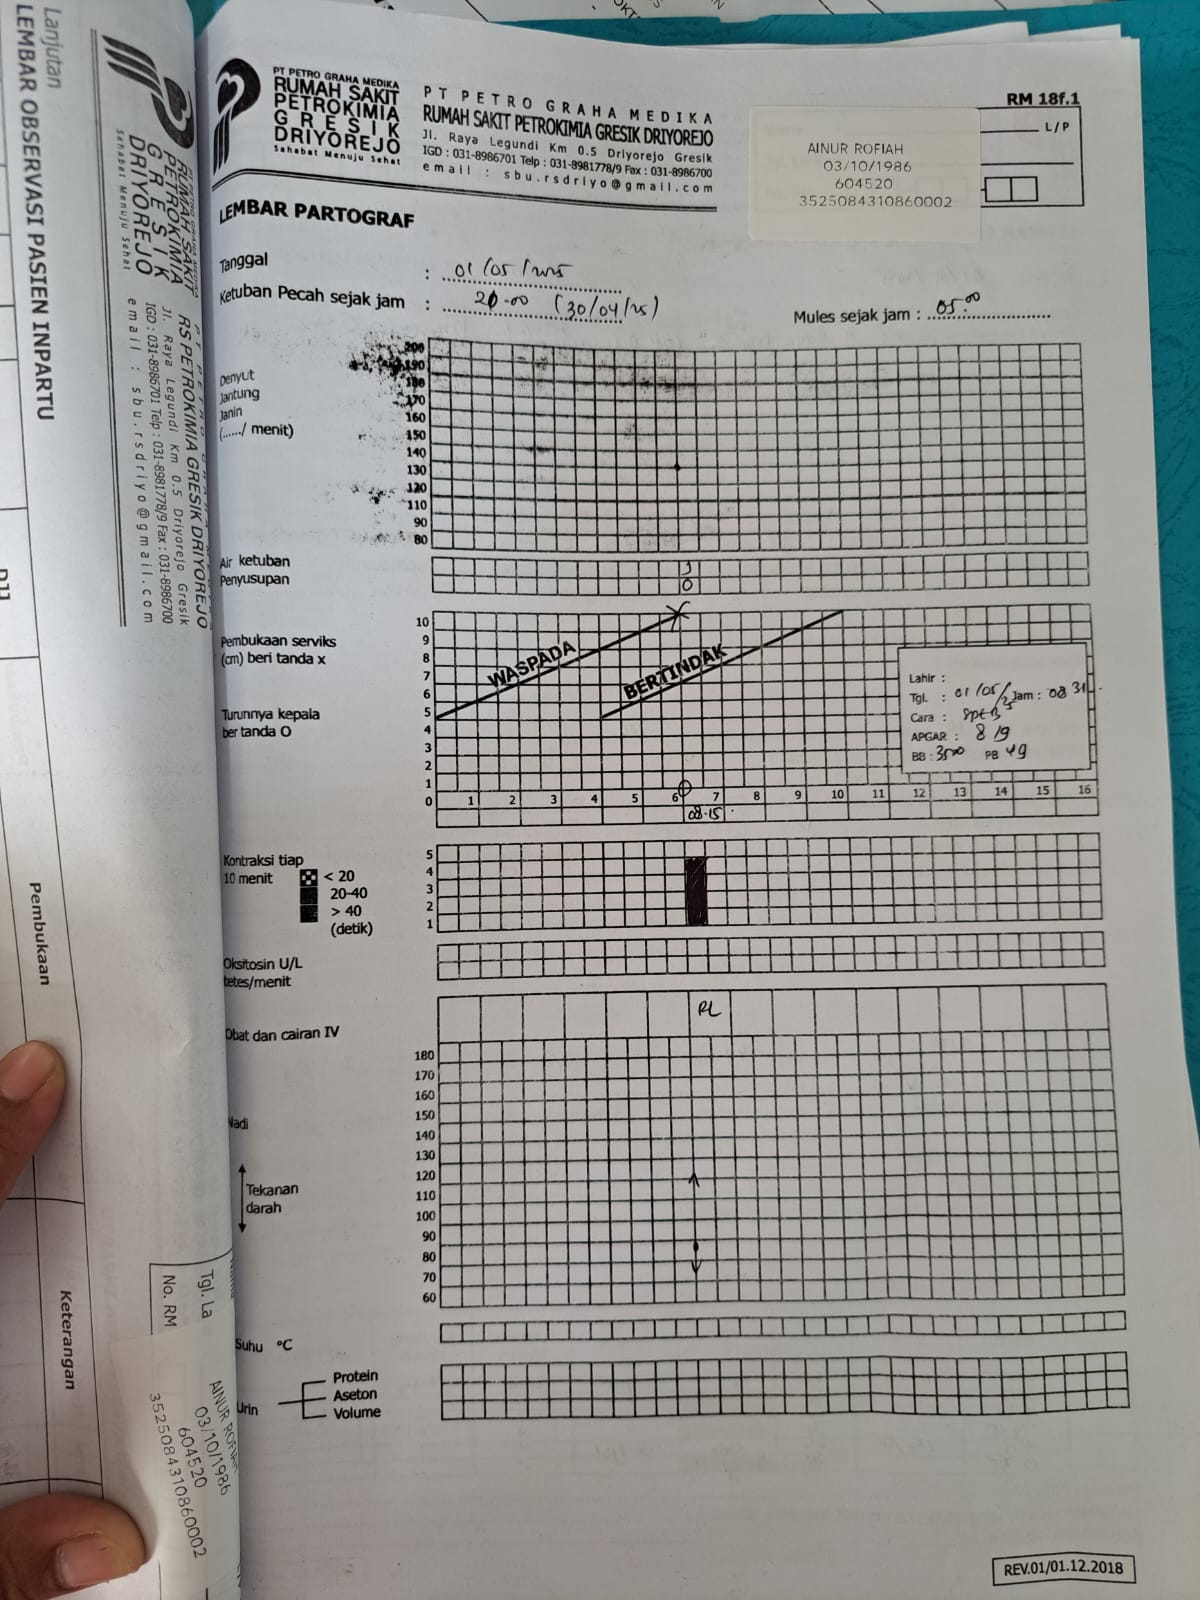 Lanjutan
LEMBAR OBSERVASI PASIEN INPARTU
Pembukaan
Keterangan
RUMAH SAKIT
PETROKIMIA
GRESIK
DRIYOREJO
Sahabat Menuju Sehat
RS PETROKIMIA GRESIK DRIYOREJO
Jl. Raya Legundi Km 0.5 Driyorejo Gresik
IGD : 031-8986701 Telp : 031-8981778/9 Fax : 031-8986700
email : sbu.rsdriyo@gmail.com
Tgl. La
No. RM
AINUR ROFIAH
03/10/1986
604520
3525084310860002
PT PETRO GRAHA MEDIKA
RUMAH SAKIT
PETROKIMIA
GRESIK
DRIYOREJO
Sahabat Menuju Sehat
PT PETRO GRAHA MEDIKA
RUMAH SAKIT PETROKIMIA GRESIK DRIYOREJO
Jl. Raya Legundi Km 0.5 Driyorejo Gresik
IGD : 031-8986701 Telp : 031-8981778/9 Fax : 031-8986700
email : sbu.rsdriyo@gmail.com
RM 18f.1
L/P
AINUR ROFIAH
03/10/1986
604520
3525084310860002
LEMBAR PARTOGRAF
Tanggal : 01/05/2025
Ketuban Pecah sejak jam : 20.00 (30/04/25)
Mules sejak jam : 05.00
Denyut
Jantung
Janin
(....../ menit)
200
190
180
170
160
150
140
130
120
110
90
80
Air ketuban
Penyusupan
J
0
Pembukaan serviks
(cm) beri tanda x
Turunnya kepala
ber tanda O
10
9
8
7
6
5
4
3
2
1
0
WASPADA
BERTINDAK
Lahir :
Tgl. : 01/05/25 Jam : 08.31
Cara : SptB
APGAR : 8/9
BB : 3500 PB 49
1 2 3 4 5 6 7 8 9 10 11 12 13 14 15 16
08.15
Kontraksi tiap
10 menit
< 20
20-40
> 40
(detik)
5
4
3
2
1
Oksitosin U/L
tetes/menit
Obat dan cairan IV
RL
180
170
160
150
140
130
120
110
100
90
80
70
60
Nadi
Tekanan
darah
Suhu °C
Urin
Protein
Aseton
Volume
REV.01/01.12.2018